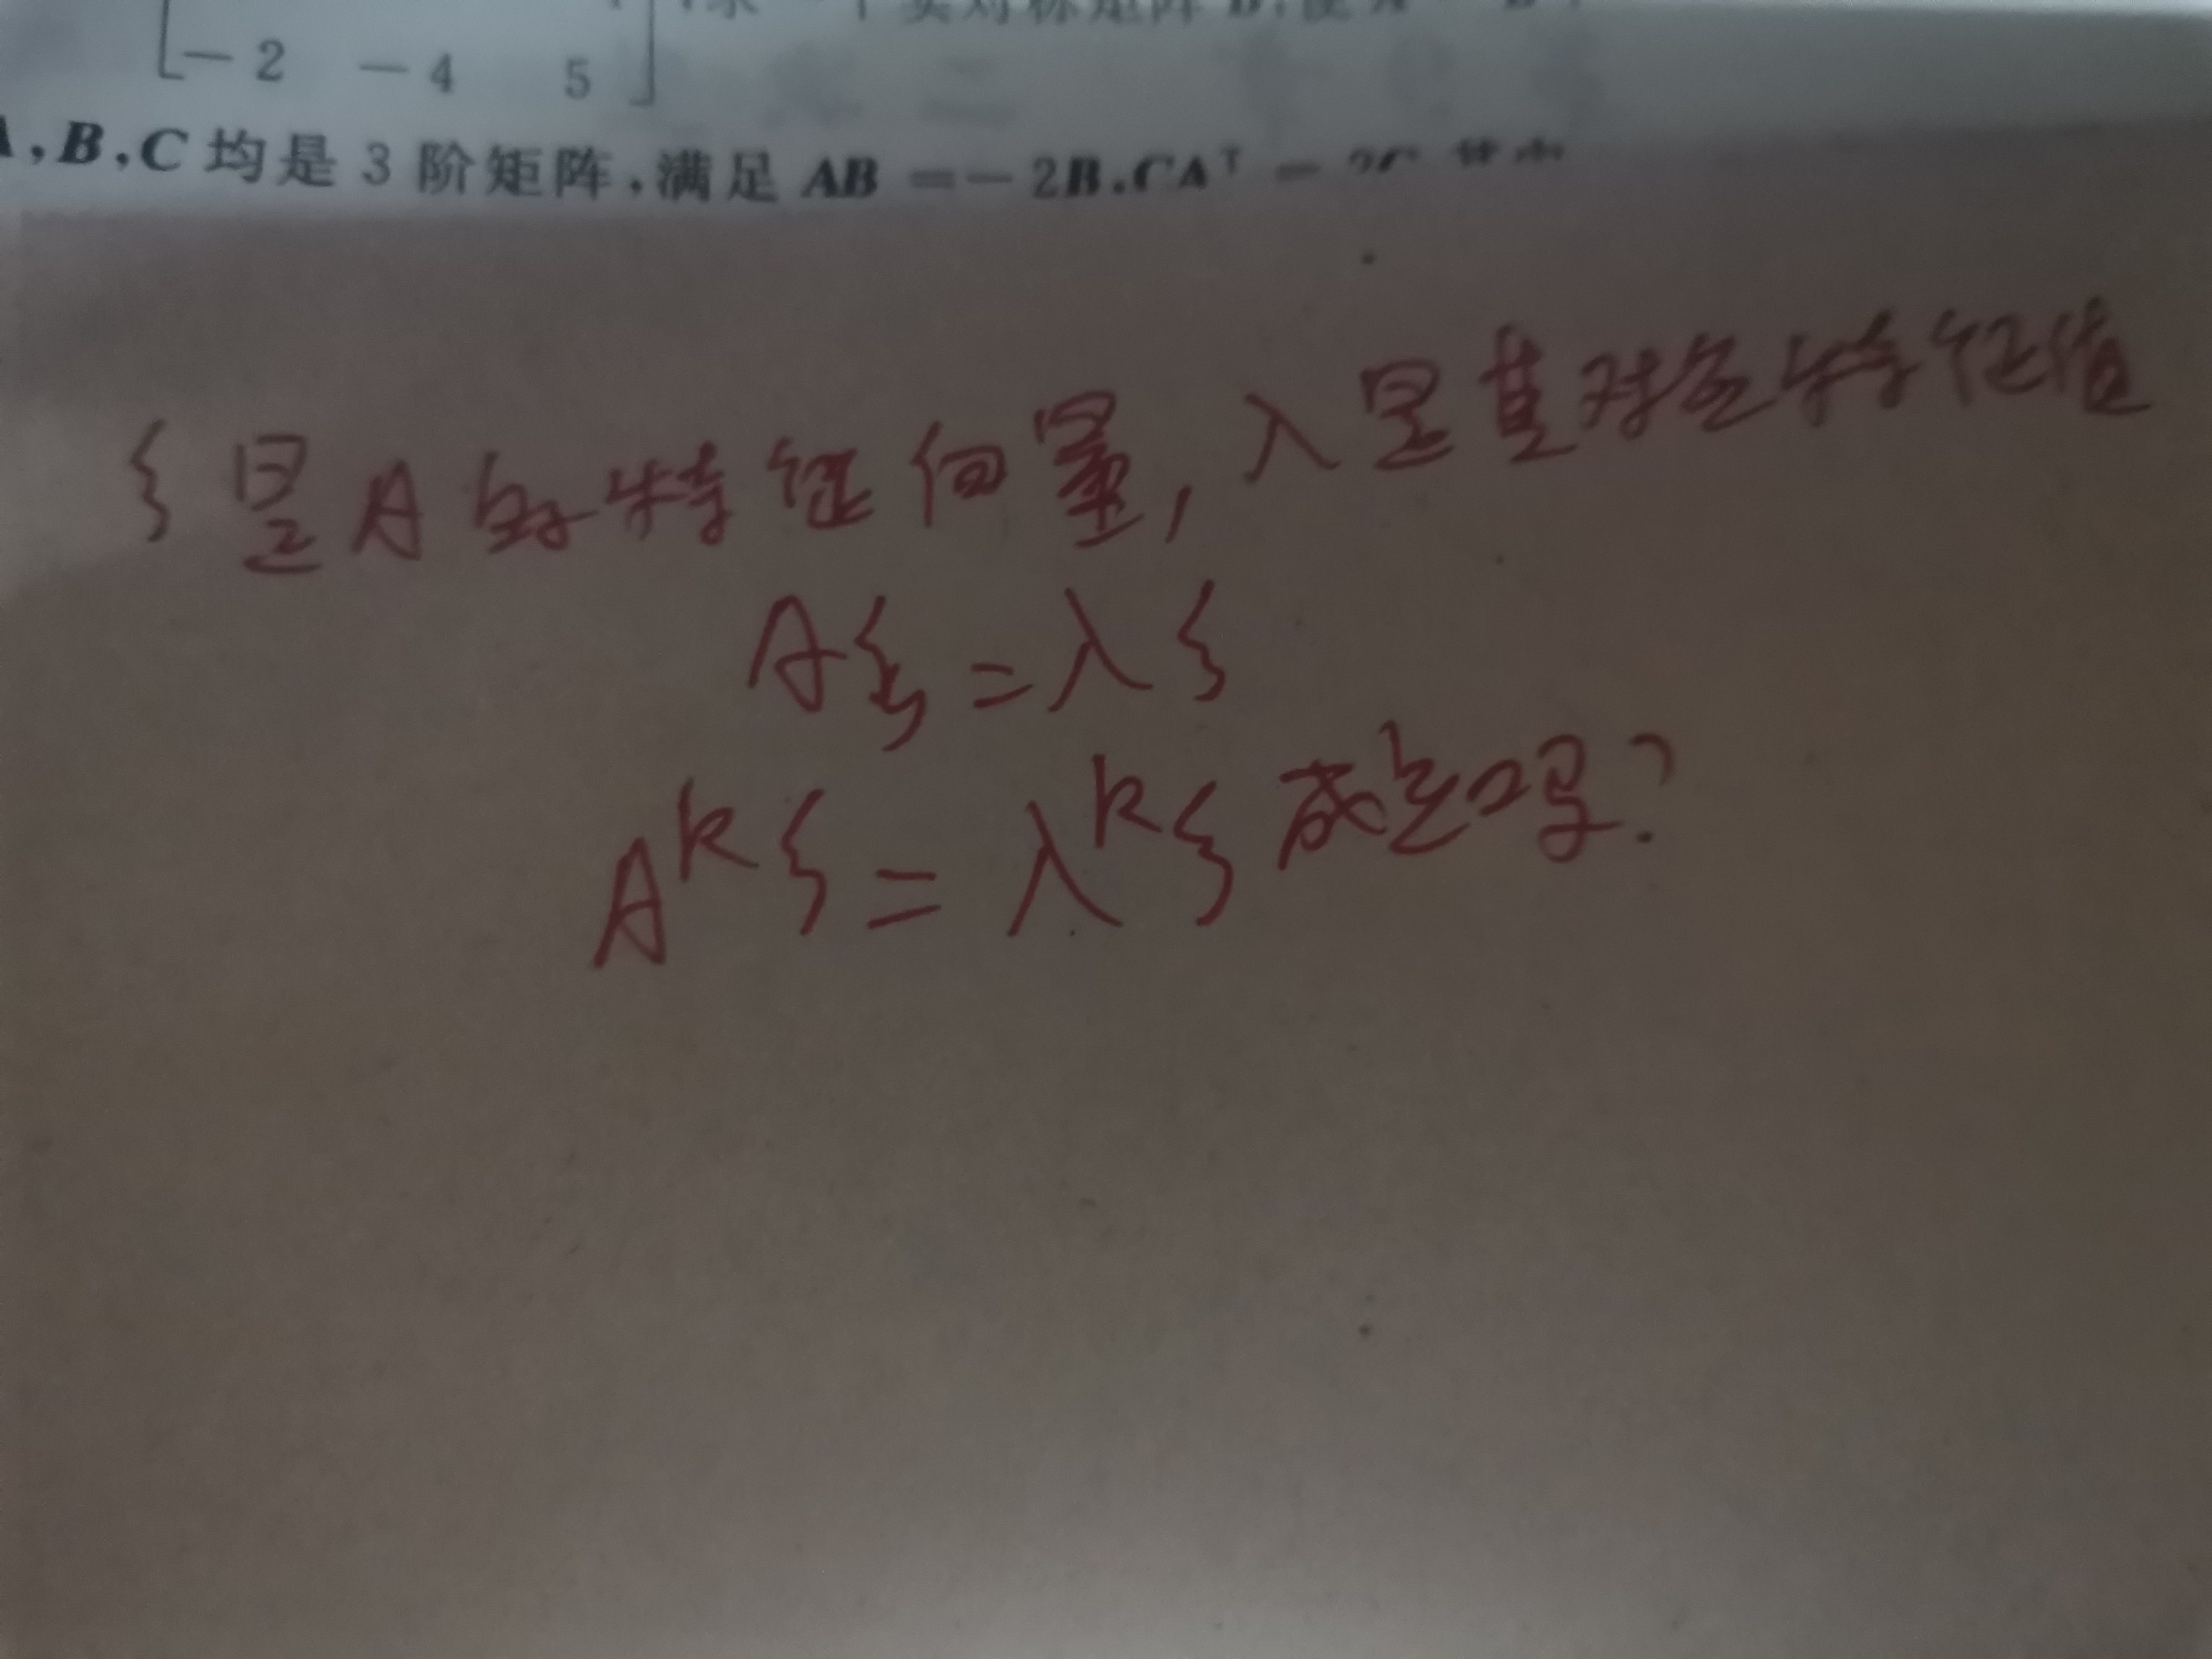 实对称矩阵
-2 -4 5
,B,C均是3阶矩阵,满足AB=-2B,CAᵀ=2C
ξ是A的特征向量,λ是其对应特征值
Aξ=λξ
Aᵏξ=λᵏξ成立吗?